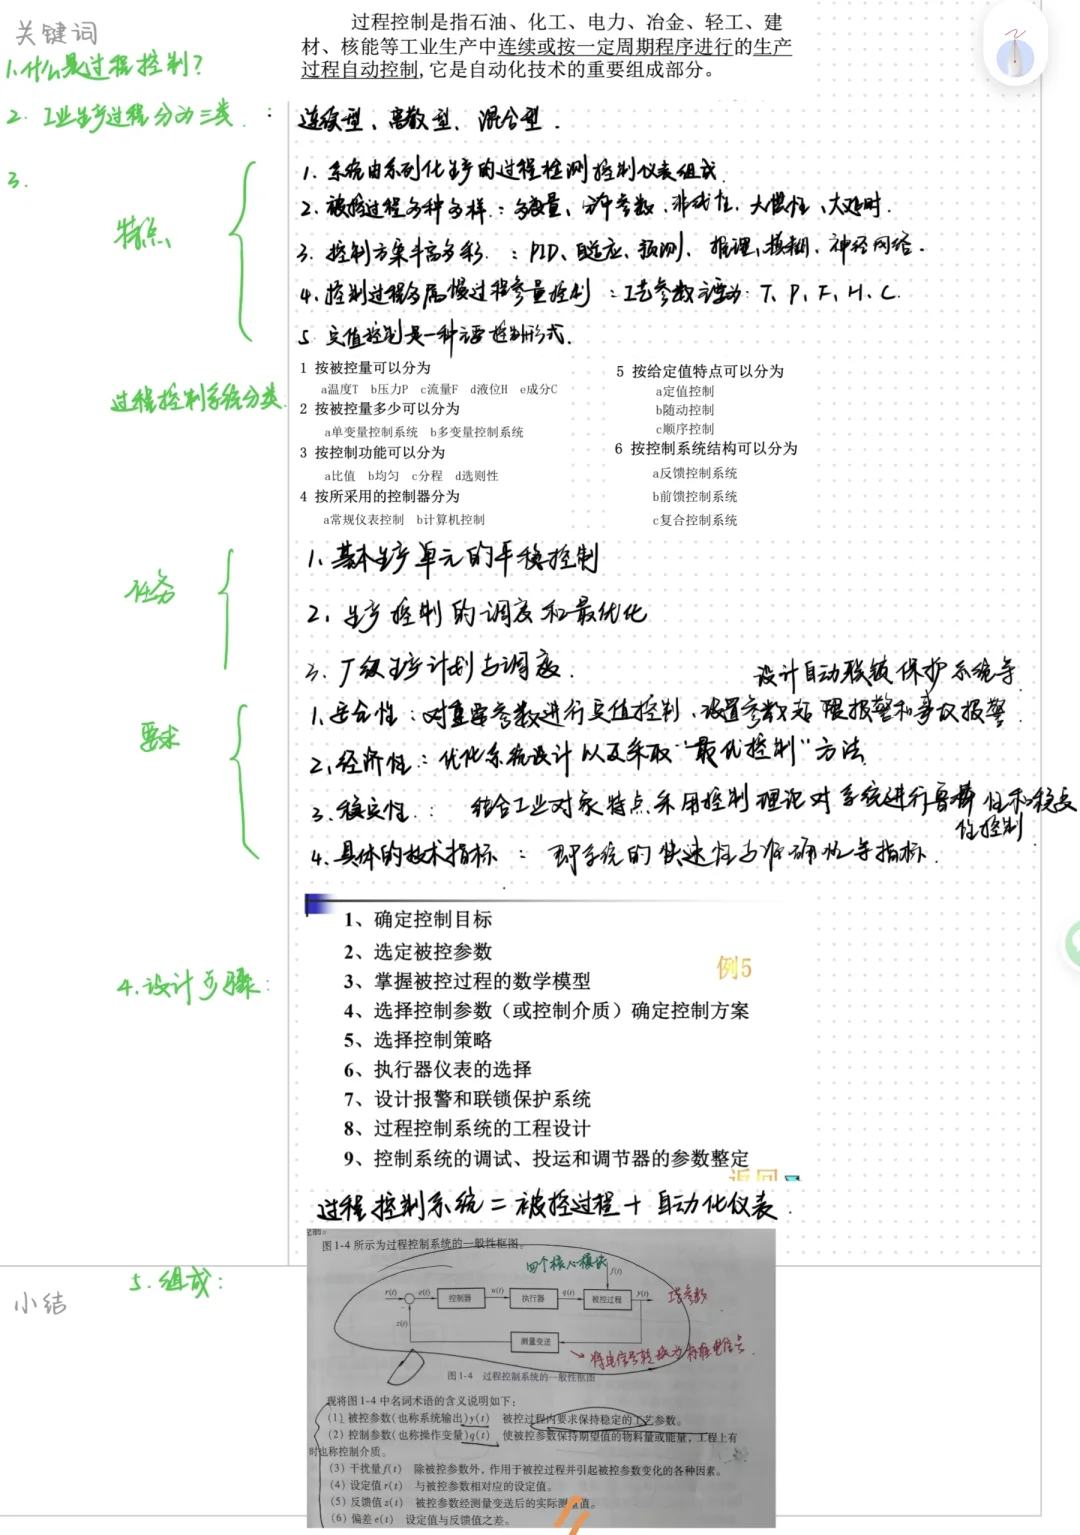 关键词
过程控制是指石油、化工、电力、冶金、轻工、建
材、核能等工业生产中连续或按一定周期程序进行的生产
过程自动控制,它是自动化技术的重要组成部分。
1.什么是过程控制?
2. 工业生产过程分为三类 :
连续型、离散型、混合型.
3.
特点
1、系统由系列化生产的过程检测控制仪表组成
2、被控过程多种多样:多变量、分布参数、非线性、大惯性、大延时.
3、控制方案丰富多彩.:PID、自适应、预测、推理、模糊、神经网络.
4、控制过程多属慢过程参量控制:工艺参数主要为:T、P、F、H、C.
5 定值控制是一种主要控制形式.
过程控制系统分类
1 按被控量可以分为
a温度T b压力P c流量F d液位H e成分C
2 按被控量多少可以分为
a单变量控制系统 b多变量控制系统
3 按控制功能可以分为
a比值 b均匀 c分程 d选则性
4 按所采用的控制器分为
a常规仪表控制 b计算机控制
5 按给定值特点可以分为
a定值控制
b随动控制
c顺序控制
6 按控制系统结构可以分为
a反馈控制系统
b前馈控制系统
c复合控制系统
任务
1、基本生产单元的平稳控制
2、生产控制的调度和最优化
3、厂级生产计划与调度.
要求
设计自动联锁保护系统等
1、安全性:对重要参数进行定值控制、设置参数越限报警和事故报警
2、经济性:优化系统设计以及采取"最优控制"方法
3、稳定性: 结合工业对象特点采用控制理论对系统进行鲁棒性和稳定
性控制
4、具体的技术指标: 即系统的快速性与准确性等指标.
4.设计步骤:
1、确定控制目标
2、选定被控参数
3、掌握被控过程的数学模型
例5
4、选择控制参数(或控制介质)确定控制方案
5、选择控制策略
6、执行器仪表的选择
7、设计报警和联锁保护系统
8、过程控制系统的工程设计
9、控制系统的调试、投运和调节器的参数整定
返回
过程控制系统=被控过程+自动化仪表.
小结
5.组成:
图1-4所示为过程控制系统的一般性框图。
四个核心模块
f(t)
r(t) e(t) 控制器 u(t) 执行器 q(t) 被控过程 y(t) 工艺参数
z(t)
测量变送
将电信号转换为标准电信号
图1-4 过程控制系统的一般性框图
现将图1-4中名词术语的含义说明如下:
(1)被控参数(也称系统输出)y(t) 被控过程内要求保持稳定的工艺参数。
(2)控制参数(也称操作变量)q(t) 使被控参数保持期望值的物料量或能量,工程上有
时也称控制介质。
(3)干扰量f(t) 除被控参数外,作用于被控过程并引起被控参数变化的各种因素。
(4)设定值r(t) 与被控参数相对应的设定值。
(5)反馈值z(t) 被控参数经测量变送后的实际测量值。
(6)偏差e(t) 设定值与反馈值之差。